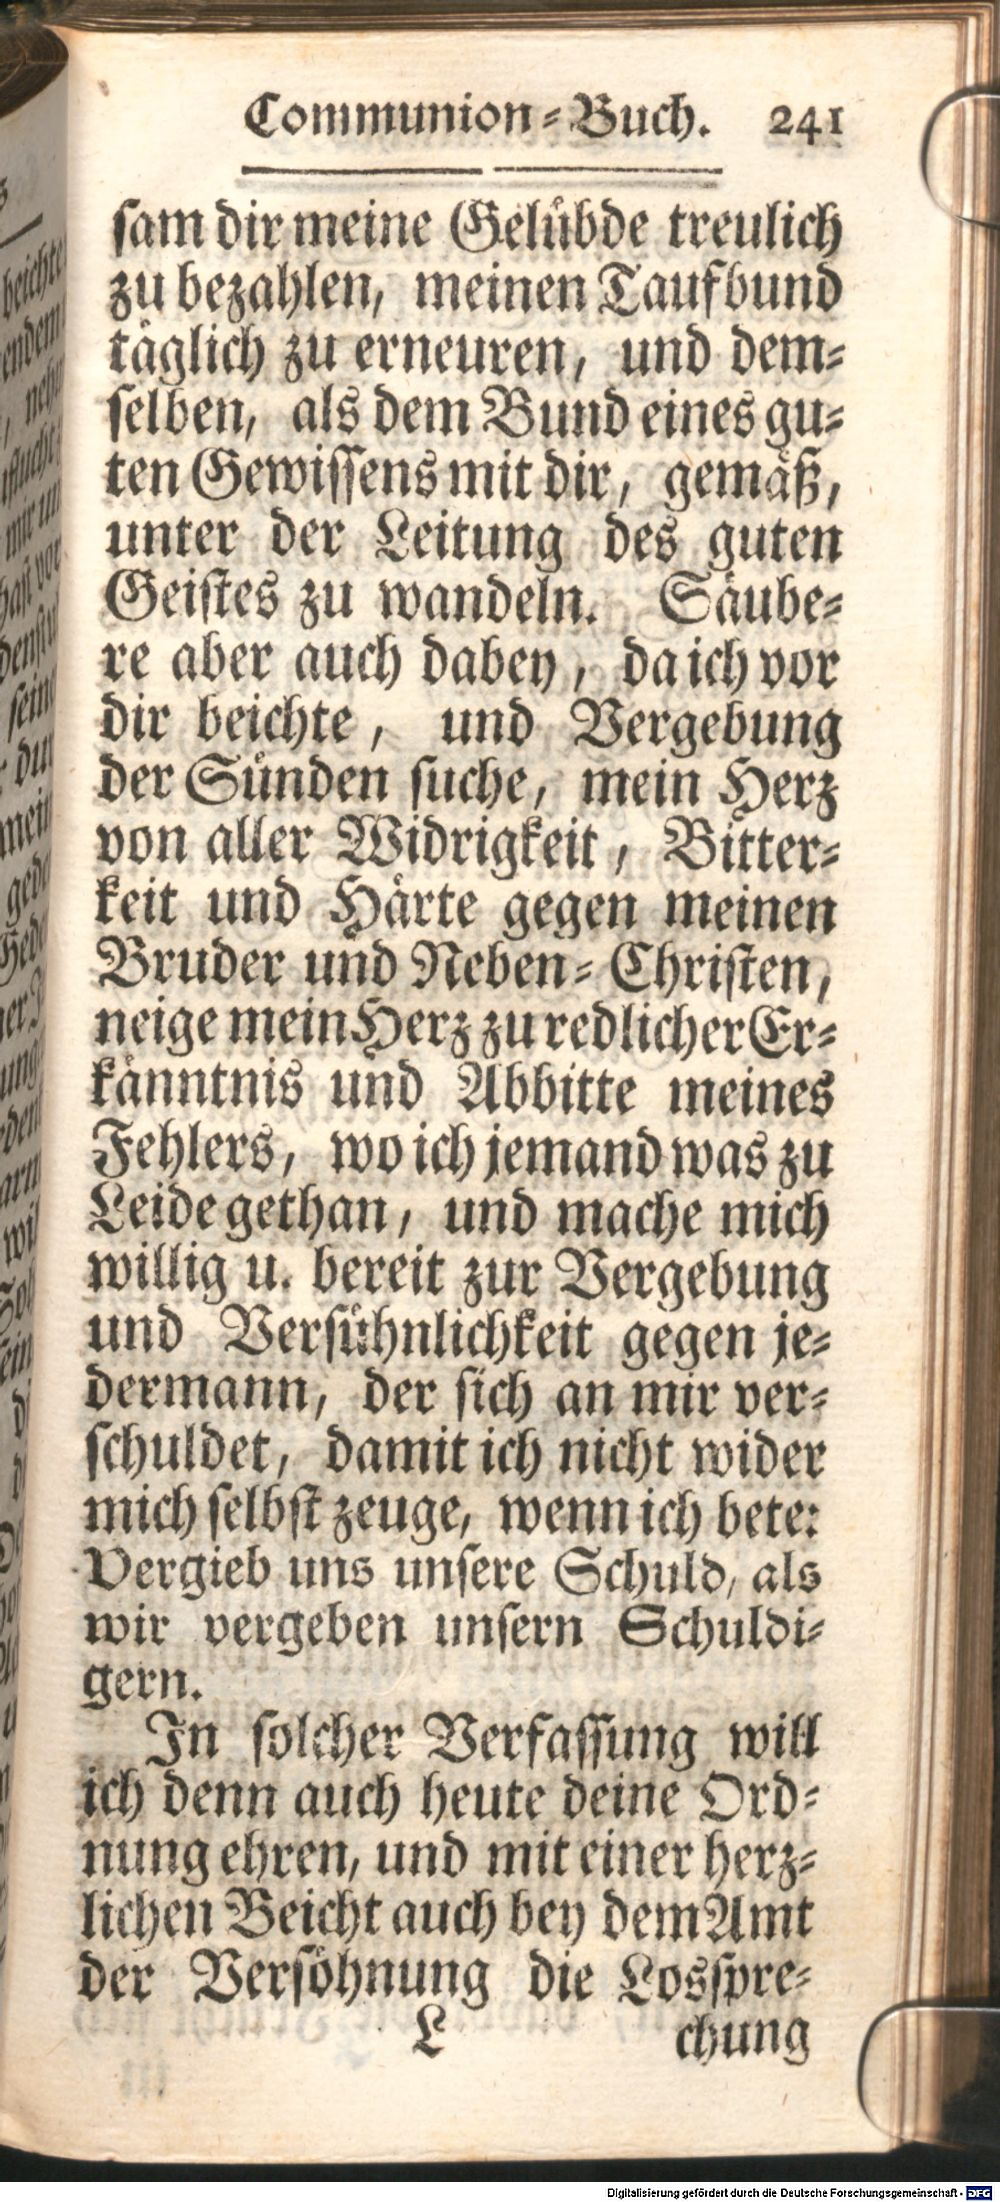 Communion-Buch. 241
sam dir meine Gelübde treulich
zu bezahlen, meinen Taufbund
täglich zu erneuren, und dem-
selben, als dem Bund eines gu-
ten Gewissens mit dir, gemäß,
unter der Leitung des guten
Geistes zu wandeln. Säube-
re aber auch dabey, da ich vor
dir beichte, und Vergebung
der Sünden suche, mein Herz
von aller Widrigkeit, Bitter-
keit und Härte gegen meinen
Bruder und Neben-Christen,
neige mein Herz zu redlicher Er-
känntnis und Abbitte meines
Fehlers, wo ich jemand was zu
Leide gethan, und mache mich
willig u. bereit zur Vergebung
und Versühnlichkeit gegen je-
dermann, der sich an mir ver-
schuldet, damit ich nicht wider
mich selbst zeuge, wenn ich bete:
Vergieb uns unsere Schuld, als
wir vergeben unsern Schuldi-
gern.
In solcher Verfassung will
ich denn auch heute deine Ord-
nung ehren, und mit einer herz-
lichen Beicht auch bey dem Amt
der Versöhnung die Losspre-
L chung
Digitalisierung gefördert durch die Deutsche Forschungsgemeinschaft - DFG